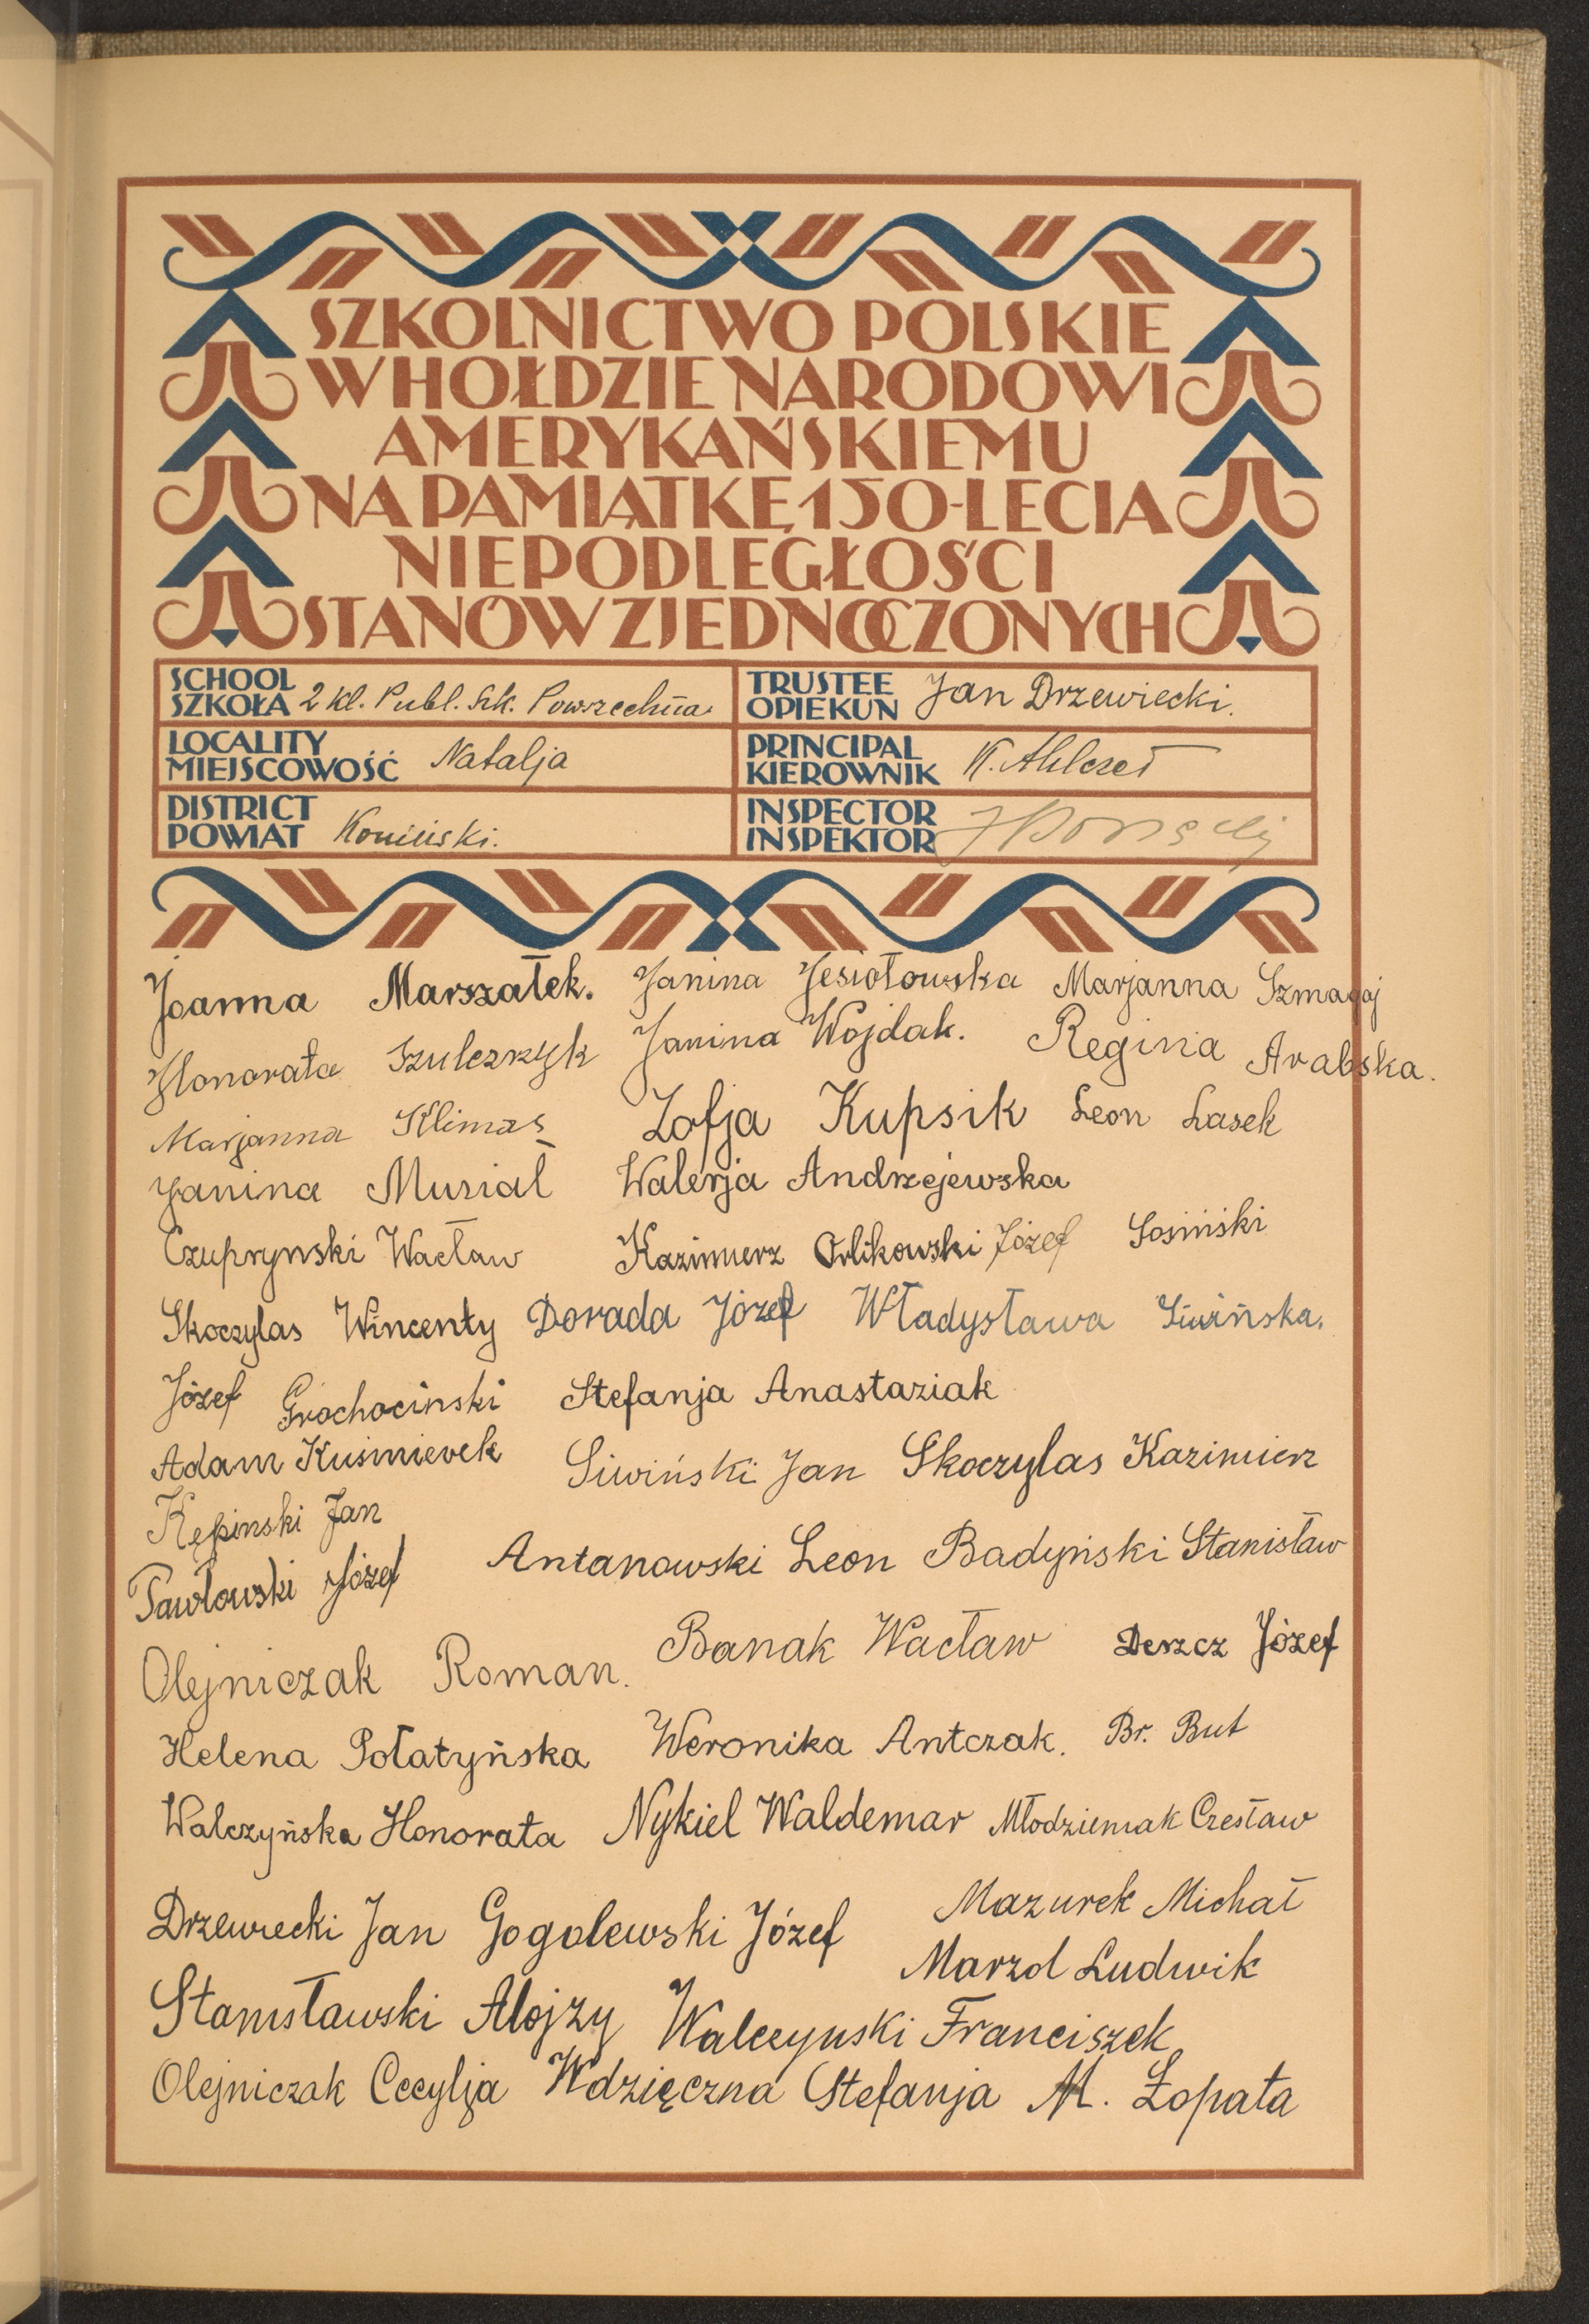 SZKOLNICTWO POLSKIE
W HOŁDZIE NARODOWI
AMERYKAŃSKIEMU
NA PAMIĄTKĘ 150-LECIA
NIEPODLEGŁOŚCI
STANÓW ZJEDNOCZONYCH
SCHOOL
SZKOŁA 2 kl. Publ. Szk. Powszechna
TRUSTEE
OPIEKUN Jan Drzewiecki.
LOCALITY
MIEJSCOWOŚĆ Natalja
PRINCIPAL
KIEROWNIK K.
DISTRICT
POWIAT Koniński.
INSPECTOR
INSPEKTOR
Joanna Marszałek. Janina Jesiołowska Marjanna Szmagaj
Honorata Szulczzyk Janina Wojdak. Regina Arabska.
Marjanna Klimas Zofja Kupsik Leon Lasek
Janina Musiał Walerja Andrzejewska
Czuprynski Wacław Kazimierz Orlikowski Józef Sosiński
Skoczylas Wincenty Dorada Józef Władysława Siwińska.
Józef Grochociński Stefanja Anastaziak
Adam Kuśmierek Siwiński Jan Skoczylas Kazimierz
Kępinski Jan
Pawłowski Józef Antanowski Leon Badyński Stanisław
Olejniczak Roman. Banak Wacław Deszcz Józef
Helena Połatyńska Weronika Antczak. Br. But
Walczyńska Honorata Nykiel Waldemar Młodzieniak Czesław
Drzewiecki Jan Gogolewski Józef Mazurek Michał
Marzol Ludwik
Stanisławski Alojzy Walczynski Franciszek
Olejniczak Cecylja Wdzięczna Stefanja M. Łopata